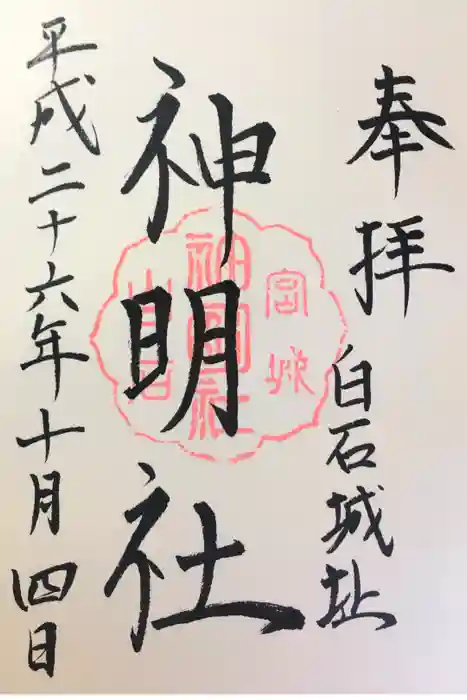 奉拝
白石城址
神明社
平成二十六年十月四日
宮城
神明社
白石